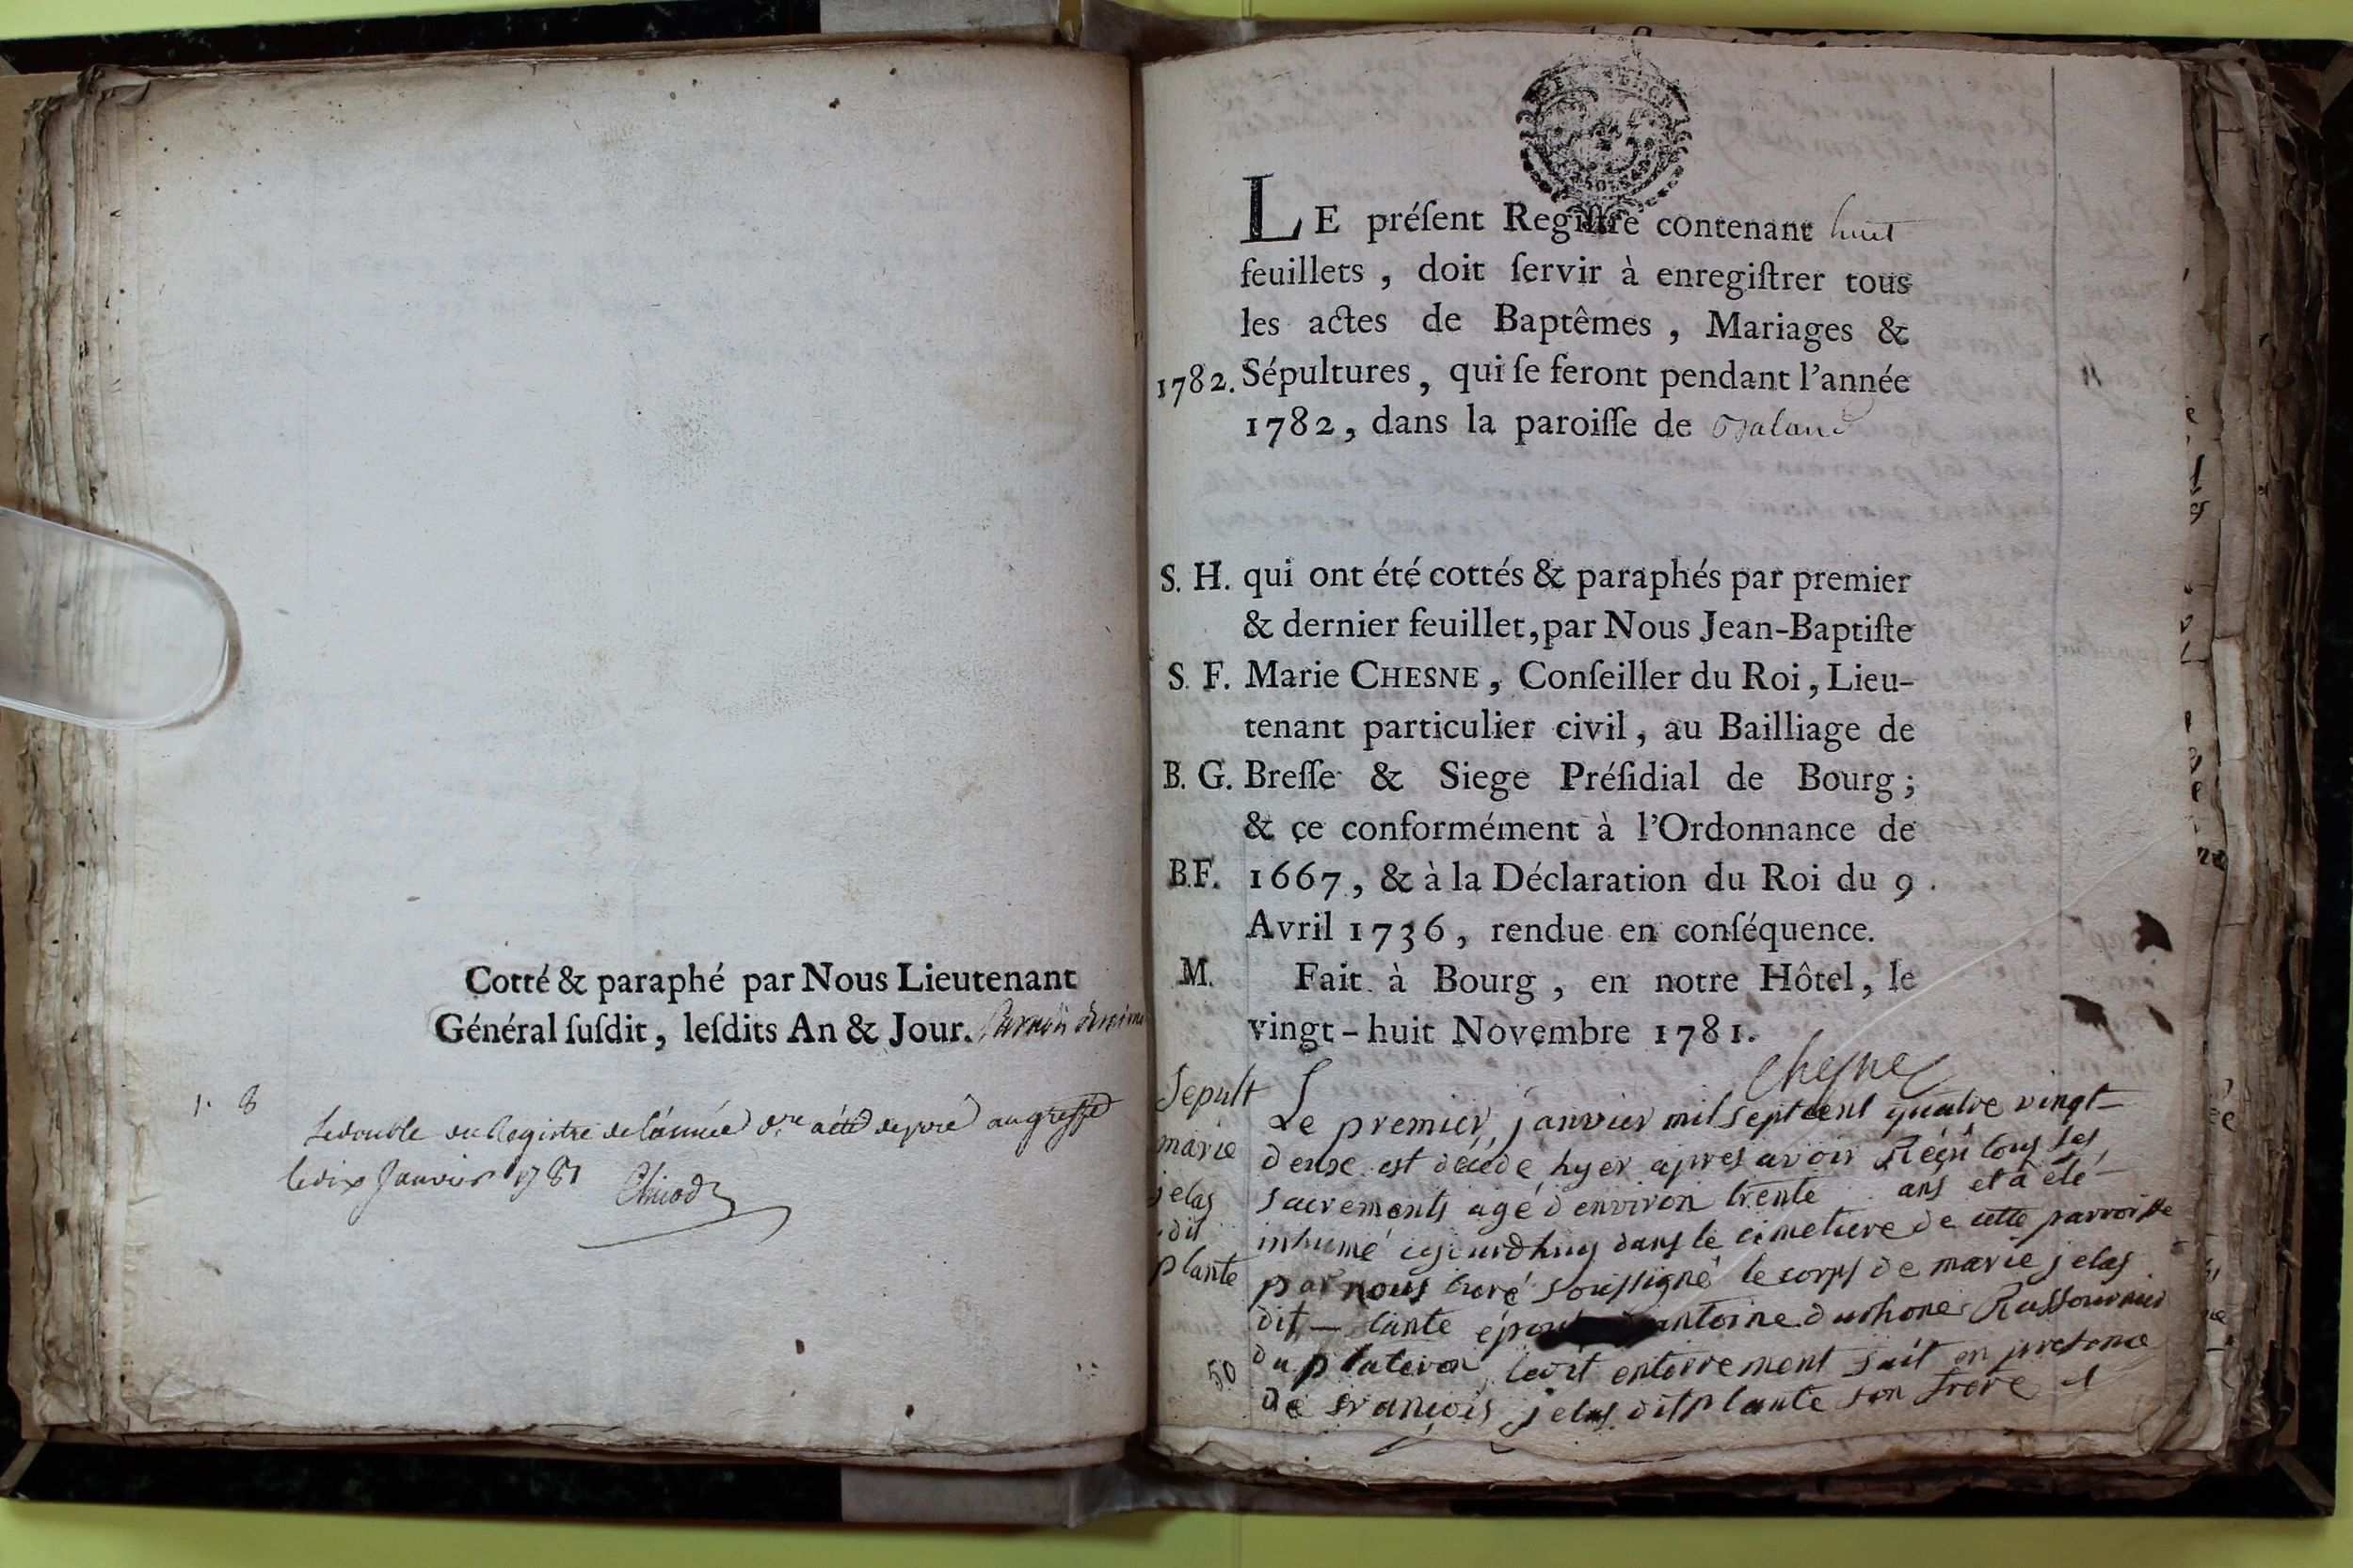 Cotté & paraphé par Nous Lieutenant
Général ſuſdit, leſdits An & Jour.
1. 8
Le double du Registre de l'année d.re a été deposé au greffe
le dix Janvier 1781 Chicod
LE préſent Regiſtre contenant huit
feuillets, doit ſervir à enregiſtrer tous
les actes de Baptêmes, Mariages &
1782. Sépultures, qui ſe feront pendant l'année
1782, dans la paroiſſe de Baland
S. H. qui ont été cottés & paraphés par premier
& dernier feuillet, par Nous Jean-Baptiſte
S. F. Marie CHESNE, Conſeiller du Roi, Lieu-
tenant particulier civil, au Bailliage de
B. G. Breſſe & Siege Préſidial de Bourg;
& çe conformément à l'Ordonnance de
B.F. 1667, & à la Déclaration du Roi du 9
Avril 1736, rendue en conſéquence.
M. Fait à Bourg, en notre Hôtel, le
vingt-huit Novembre 1781.
Chesne
Sepult
marie
jelas
dit
plante
Le premier janvier mil sept cent quatre vingt
deux est décédé hyer apres avoir Réçu tous ses
sacrements agé d'environ trente ans et a été
inhumé aujourdhuy dans le cimetiere de cette parroisse
par nous curé soussigné le corps de marie jelas
dit lante antoine
du enterrement fait en presence
de françois jelas dit plante son frere
50